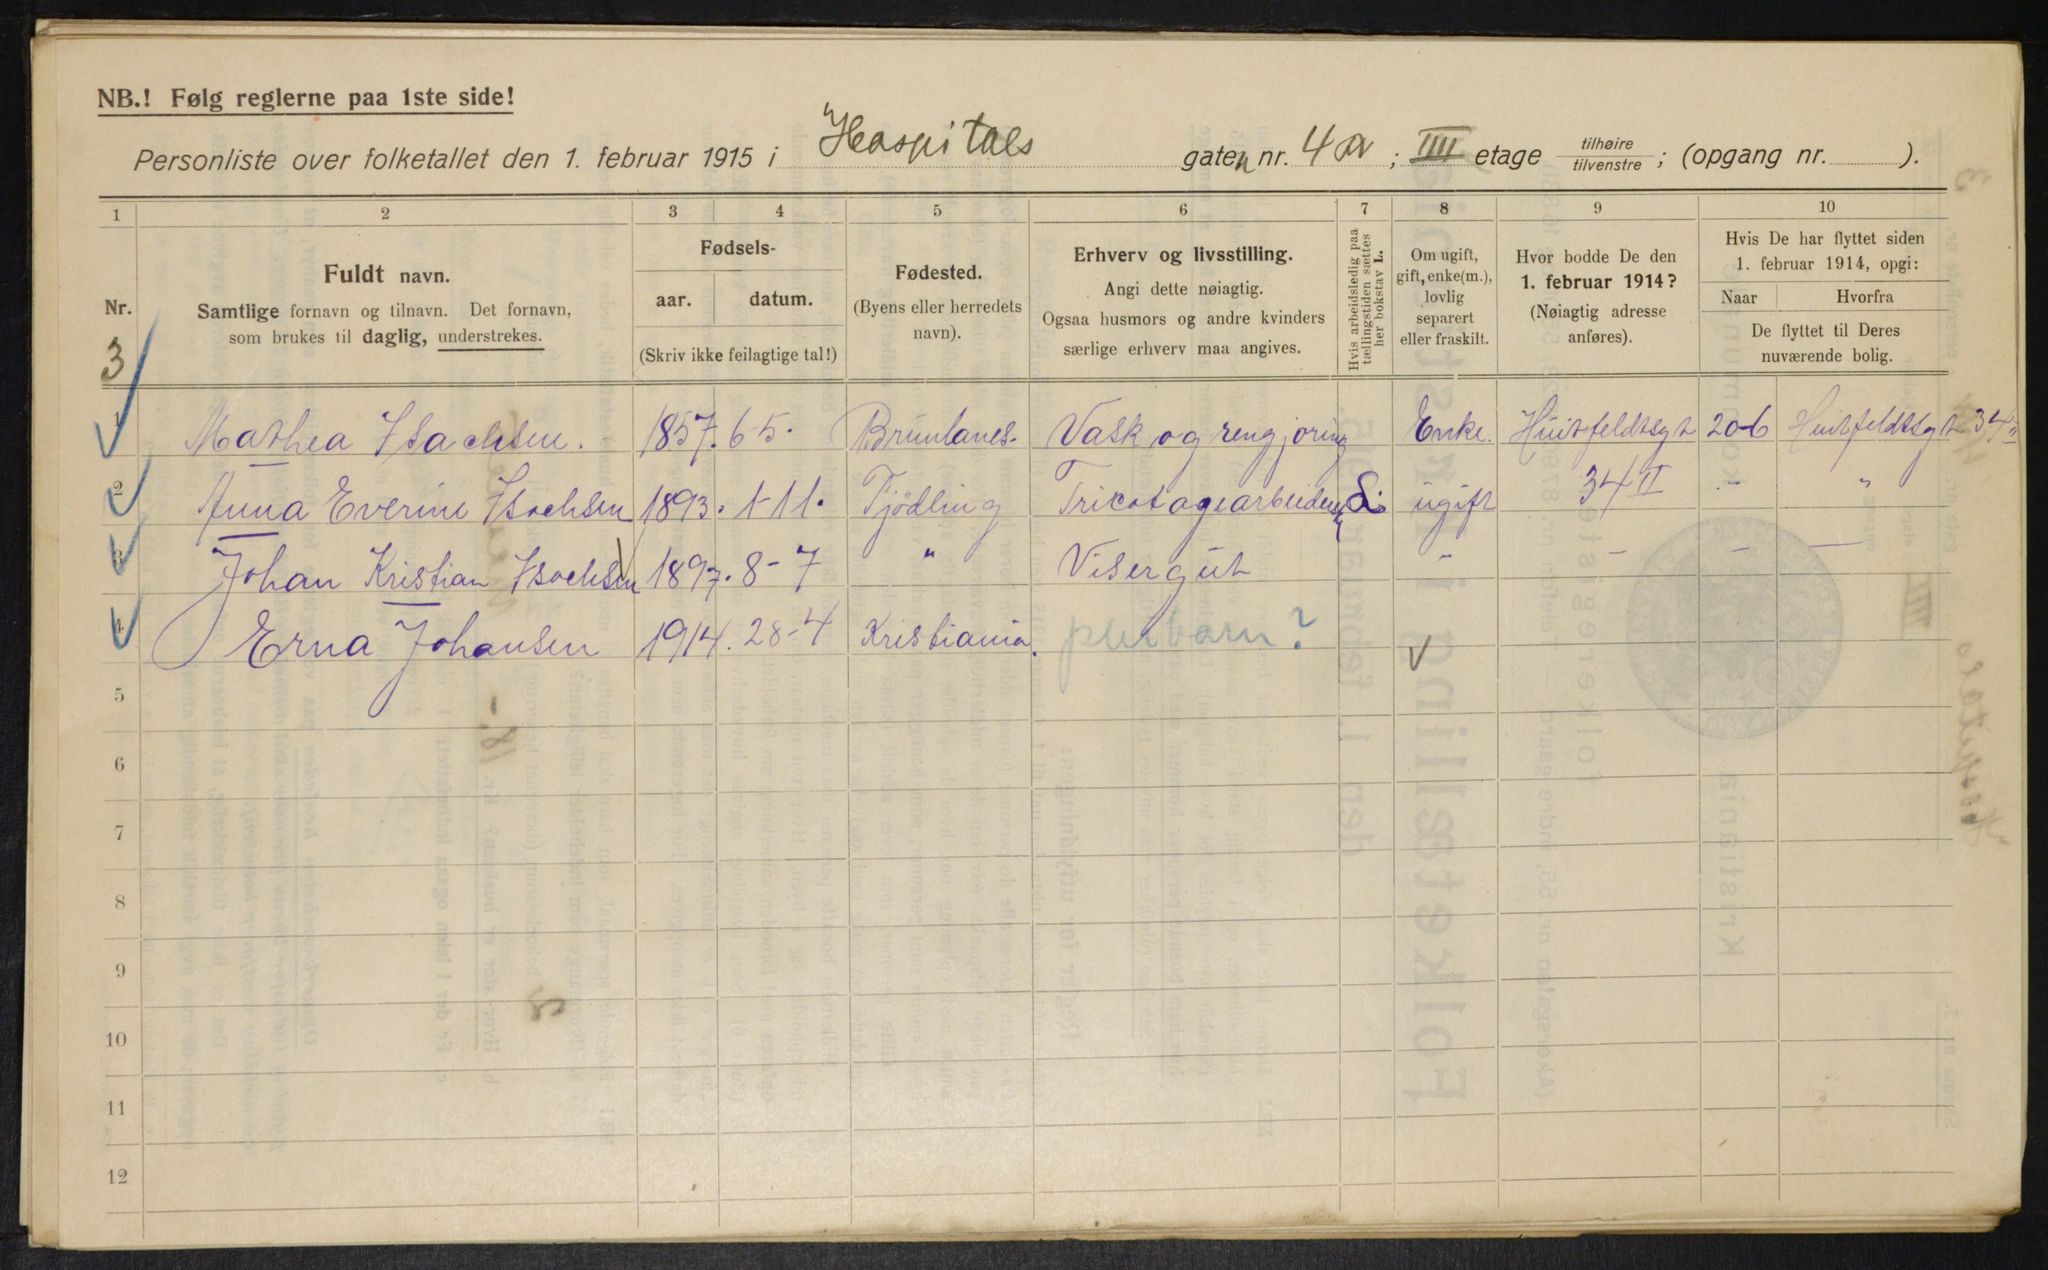 NB.! Følg reglerne paa 1ste side!
Personliste over folketallet den 1. februar 1915 i Hospitals gaten nr. 4a; IIII etage tilhøire/tilvenstre; (opgang nr. ).
1 2 3 4 5 6 7 8 9 10
Nr.
Fuldt navn.
Samtlige fornavn og tilnavn. Det fornavn,
som brukes til daglig, understrekes.
Fødsels-
aar. datum.
(Skriv ikke feilagtige tal!)
Fødested.
(Byens eller herredets
navn).
Erhverv og livsstilling.
Angi dette nøiagtig.
Ogsaa husmors og andre kvinders
særlige erhverv maa angives.
Hvis arbeidsledig paa
tællingstiden sættes
her bokstav L.
Om ugift,
gift, enke(m.),
lovlig
separert
eller fraskilt.
Hvor bodde De den
1. februar 1914?
(Nøiagtig adresse
anføres).
Hvis De har flyttet siden
1. februar 1914, opgi:
Naar Hvorfra
De flyttet til Deres
nuværende bolig.
3
1 Mathea Isachsen. 1857. 6-5. Brunlanes. Vask og rengjøring Enke. Huitfeldtsgt 20-6 Huitfeldtsgt 34 II
2 Anna Everine Isachsen 1893. 1-11. Tjødling Tricotagearbeiderske L. ugift 34 II - "
3 Johan Kristian Isachsen 1897. 8-7 " Visergut - - - -
4 Erna Johansen 1914. 28-4 Kristiania. pleibarn?
5
6
7
8
9
10
11
12